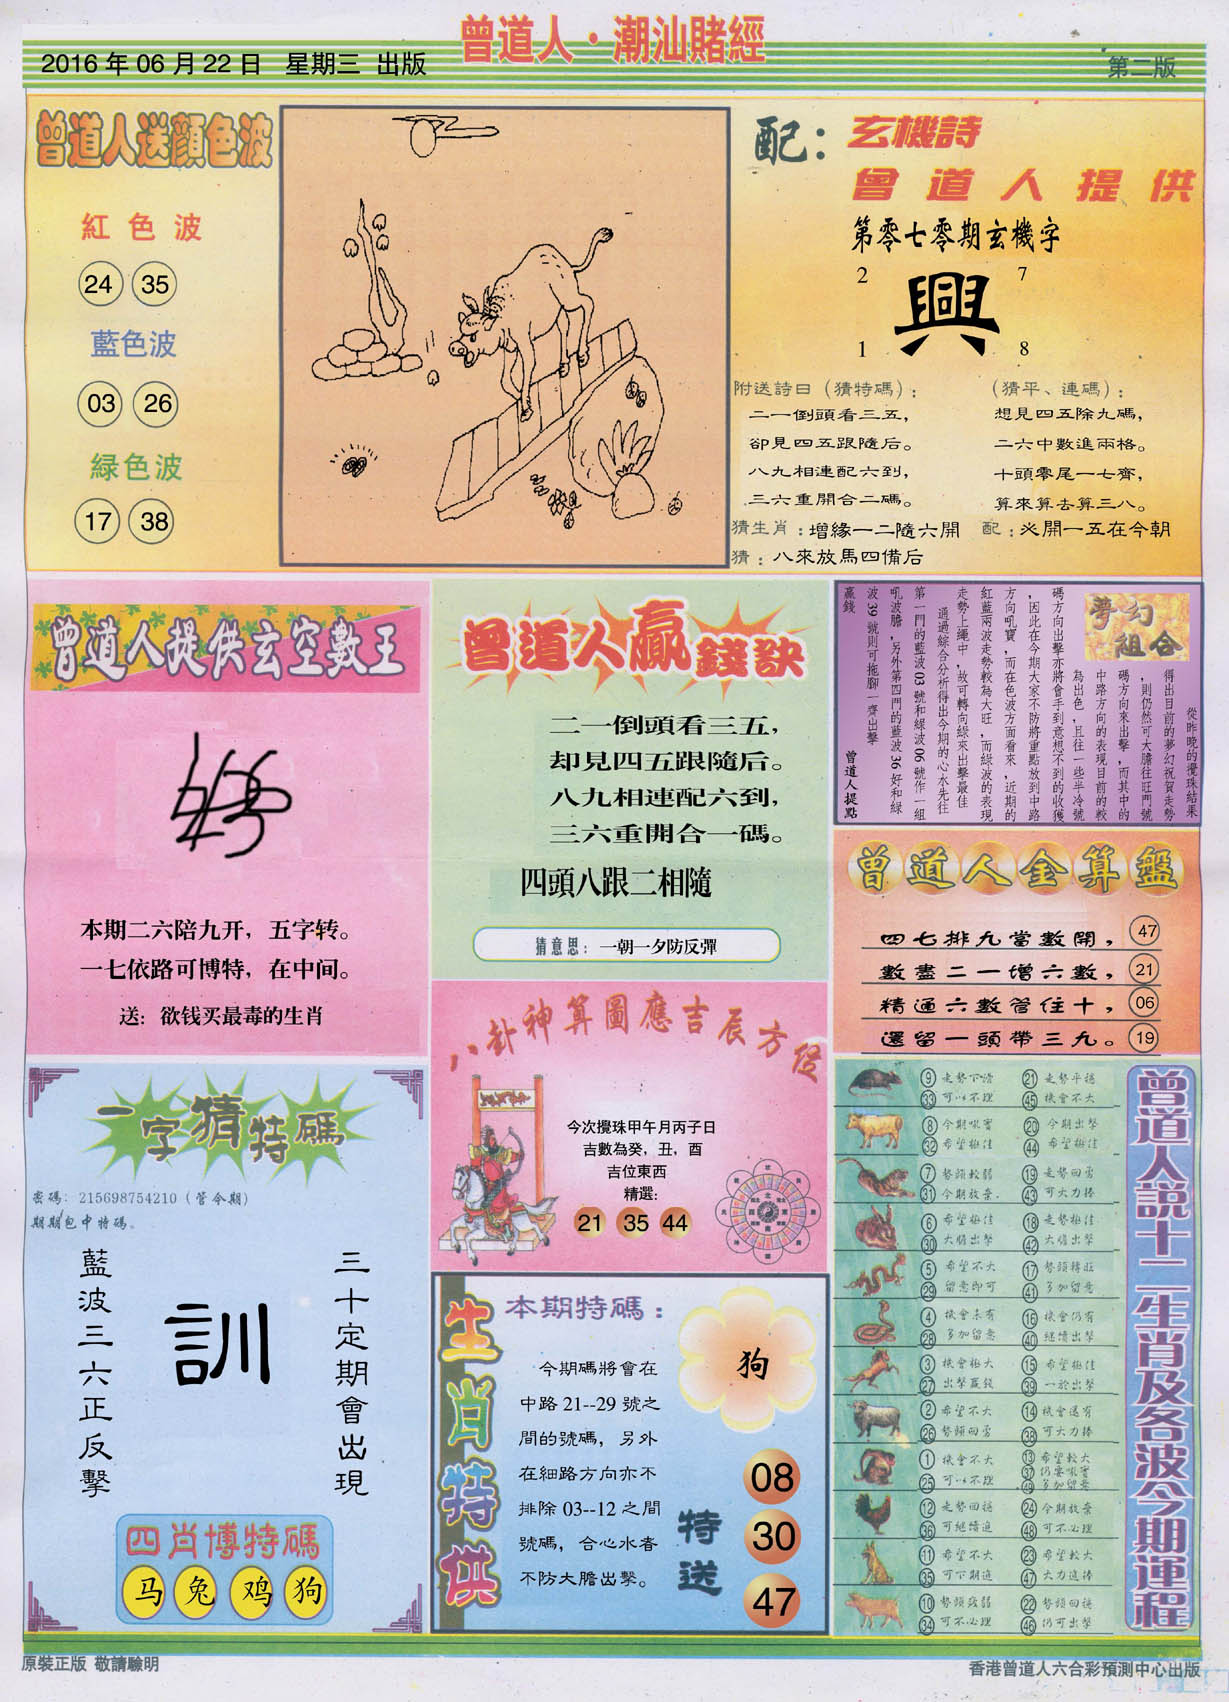 曾道人·潮汕賭經
2016 年 06 月 22 日 星期三 出版
第二版
曾道人送顔色波
紅色波
24 35
藍色波
03 26
緑色波
17 38
配：
玄機詩
曾道人提供
第零七零期玄機字
2 7
興
1 8
附送詩曰（猜特碼）：
二一倒頭看三五，
卻見四五跟隨后。
八九相連配六到，
三六重開合二碼。
（猜平、連碼）：
想見四五除九碼，
二六中數進兩格。
十頭零尾一七齊，
算來算去算三八。
猜生肖：增緣一二隨六開
配：必開一五在今朝
猜：八來放馬四備后
曾道人提供玄空數王
本期二六陪九开，五字转。
一七依路可博特，在中间。
送：欲钱买最毒的生肖
曾道人贏錢訣
二一倒頭看三五，
却見四五跟隨后。
八九相連配六到，
三六重開合一碼。
四頭八跟二相隨
猜意思：一朝一夕防反彈
夢幻
組合
從昨晚的攪珠結果
得出目前的夢幻祝賀走勢
，則仍然可大膽往旺門號
碼方向來出擊，而其中的
中路方向的表現目前的較
為出色，且往一些半冷號
碼方向出擊亦將會手到意想不到的收獲
，因此在今期大家不防將重點放到中路
方向吼寶，而在色波方面看來，近期的
紅藍兩波走勢較為大旺，而綠波的表現
走勢上繩中，故可轉向綠來出擊最佳
通過綜合分析得出今期的心水先往
第一門的藍波 03 號和綠波 06 號作一組
吼波膽，另外第四門的藍波 36 好和綠
波 39 號則可拖腳一齊出擊
贏錢
曾道人提點
曾道人金算盤
四七排九當數開， 47
數盡二一增六數， 21
精通六數管住十， 06
還留一頭帶三九。 19
八卦神算圖應吉辰方位
今次攪珠甲午月丙子日
吉數為癸，丑，酉
吉位東西
精選：
21 35 44
一字猜特碼
密碼：215698754210（管令期）
期期包中特碼。
三十定期會出現
訓
藍波三六正反擊
四肖博特碼
马 兔 鸡 狗
生肖特供
本期特碼：
狗
今期碼將會在
中路 21--29 號之
間的號碼，另外
在細路方向亦不
排除 03--12 之間
號碼，合心水者
不防大膽出擊。
特送
08
30
47
曾道人説十二生肖及各波今期運程
⑨ 走勢下滑 ㉑ 走勢平穩
㉝ 可以不理 ㊺ 機會不大
⑧ 今期吼寶 ⑳ 今期出擊
㉜ 希望極佳 ㊹ 希望極佳
⑦ 勢頭較弱 ⑲ 走勢回勇
㉛ 今期放棄 ㊸ 可大力捧
⑥ 希望極佳 ⑱ 走勢極佳
㉚ 大膽出擊 ㊷ 大膽出擊
⑤ 希望不大 ⑰ 勢頭轉旺
㉙ 留意即可 ㊶ 多加留意
④ 機會未有 ⑯ 機會仍有
㉘ 多加留意 ㊵ 繼續出擊
③ 機會極大 ⑮ 希望極佳
㉗ 出擊贏錢 ㊴ 一於出擊
② 希望不大 ⑭ 機會還有
㉖ 勢頭回勇 ㊳ 可大力捧
① 機會不大 ⑬ 希望較大
㉕ 可以不理 ㊲ 仍要吼寶
㊾ 多加留意
⑫ 走勢回穩 ㉔ 今期放棄
㊱ 可繼續追 ㊽ 可不必理
⑪ 希望不大 ㉓ 希望較大
㉟ 可下期追 ㊼ 大力追捧
⑩ 勢頭疲弱 ㉒ 勢頭回穩
㉞ 可不必理 ㊻ 仍可出擊
原裝正版 敬請驗明
香港曾道人六合彩預測中心出版